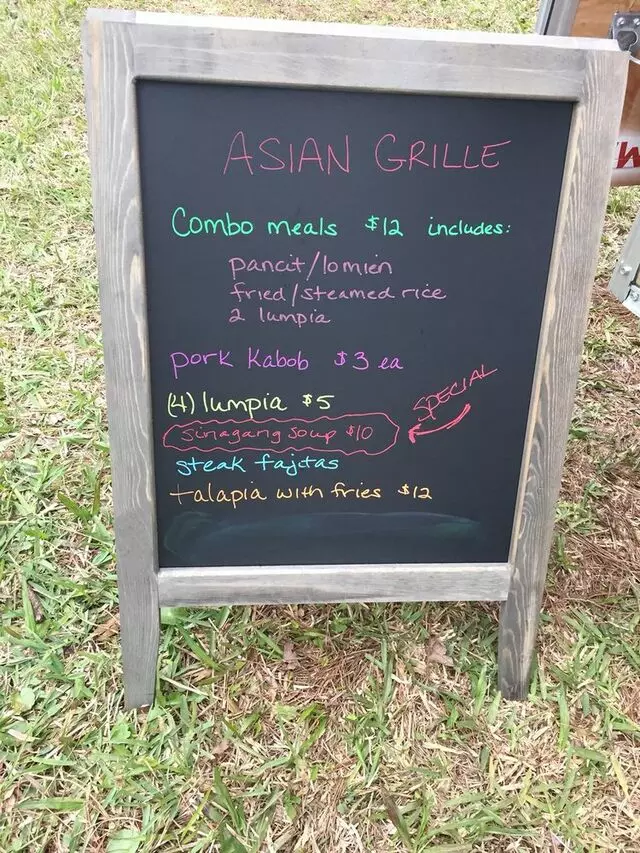 ASIAN GRILLE
Combo meals $12 includes:
pancit/lomien
fried/steamed rice
2 lumpia
pork kabob $3 ea
(4) lumpia $5
SPECIAL
sinagang soup $10
steak fajitas
talapia with fries $12
W